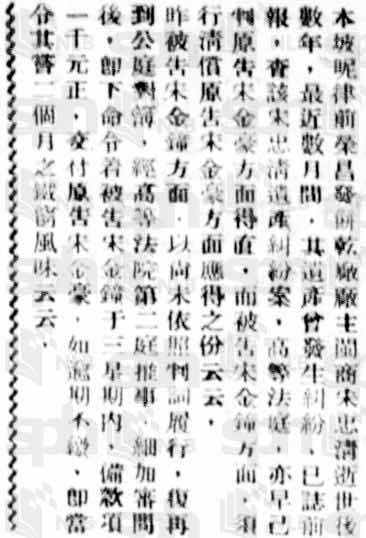 本坡昵律前榮昌發餅乾廠廠主閩商宋忠淸逝世後
數年，最近數月間，其遺產曾發生糾紛，已誌前
報，査該宋忠淸遺產糾紛案，高等法庭，亦早已
判原吿宋金豪方面得直，而被吿宋金鐘方面，須
行淸償原吿宋金豪方面應得之份云云，
昨被吿宋金鐘方面，以尙未依照判詞履行，復再
到公庭對簿，經高等法院第二庭推事，細加審問
後，卽下命令着被吿宋金鐘于三星期內，備款項
一千元正，交付原吿宋金豪，如逾期不繳，卽當
令其嘗二個月之鐵窗風味云云，